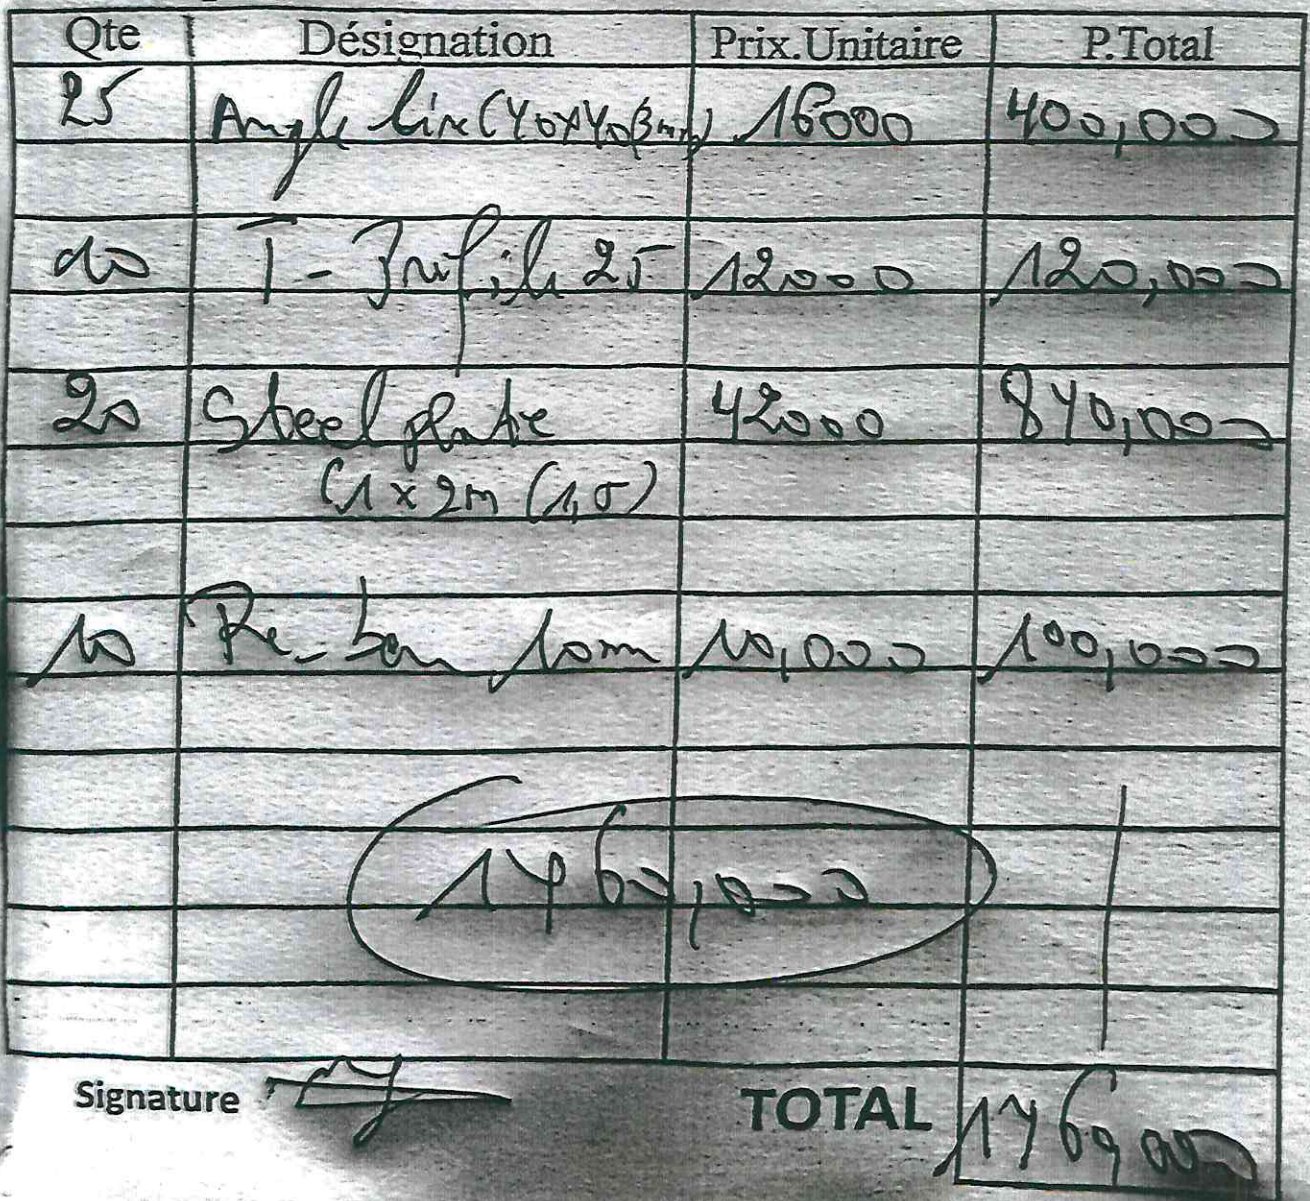 Qte Désignation Prix.Unitaire P.Total
25 Angle line (40x40x3mm) 16000 400,000
10 T-Profile 25 12000 120,000
20 Steel plate 42000 840,000
(1 x 2m (1,5)
10 Re-bar 10mm 10,000 100,000
1460,000
Signature TOTAL 1460,000